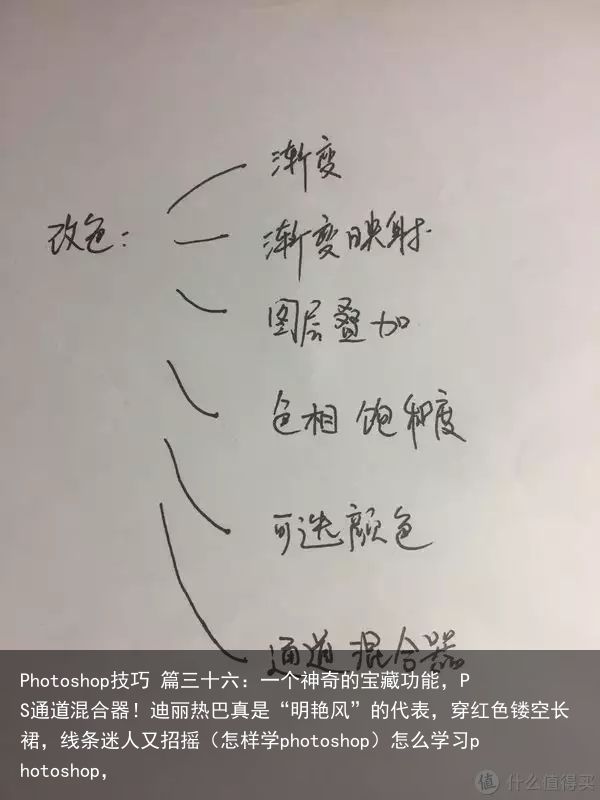 渐变
改色：
渐变映射
图层叠加
色相 饱和度
可选颜色
通道混合器
Photoshop技巧 篇三十六：一个神奇的宝藏功能，P
S通道混合器！迪丽热巴真是“明艳风”的代表，穿红色镂空长
裙，线条迷人又招摇（怎样学photoshop）怎么学习p
hotoshop，
值 什么值得买